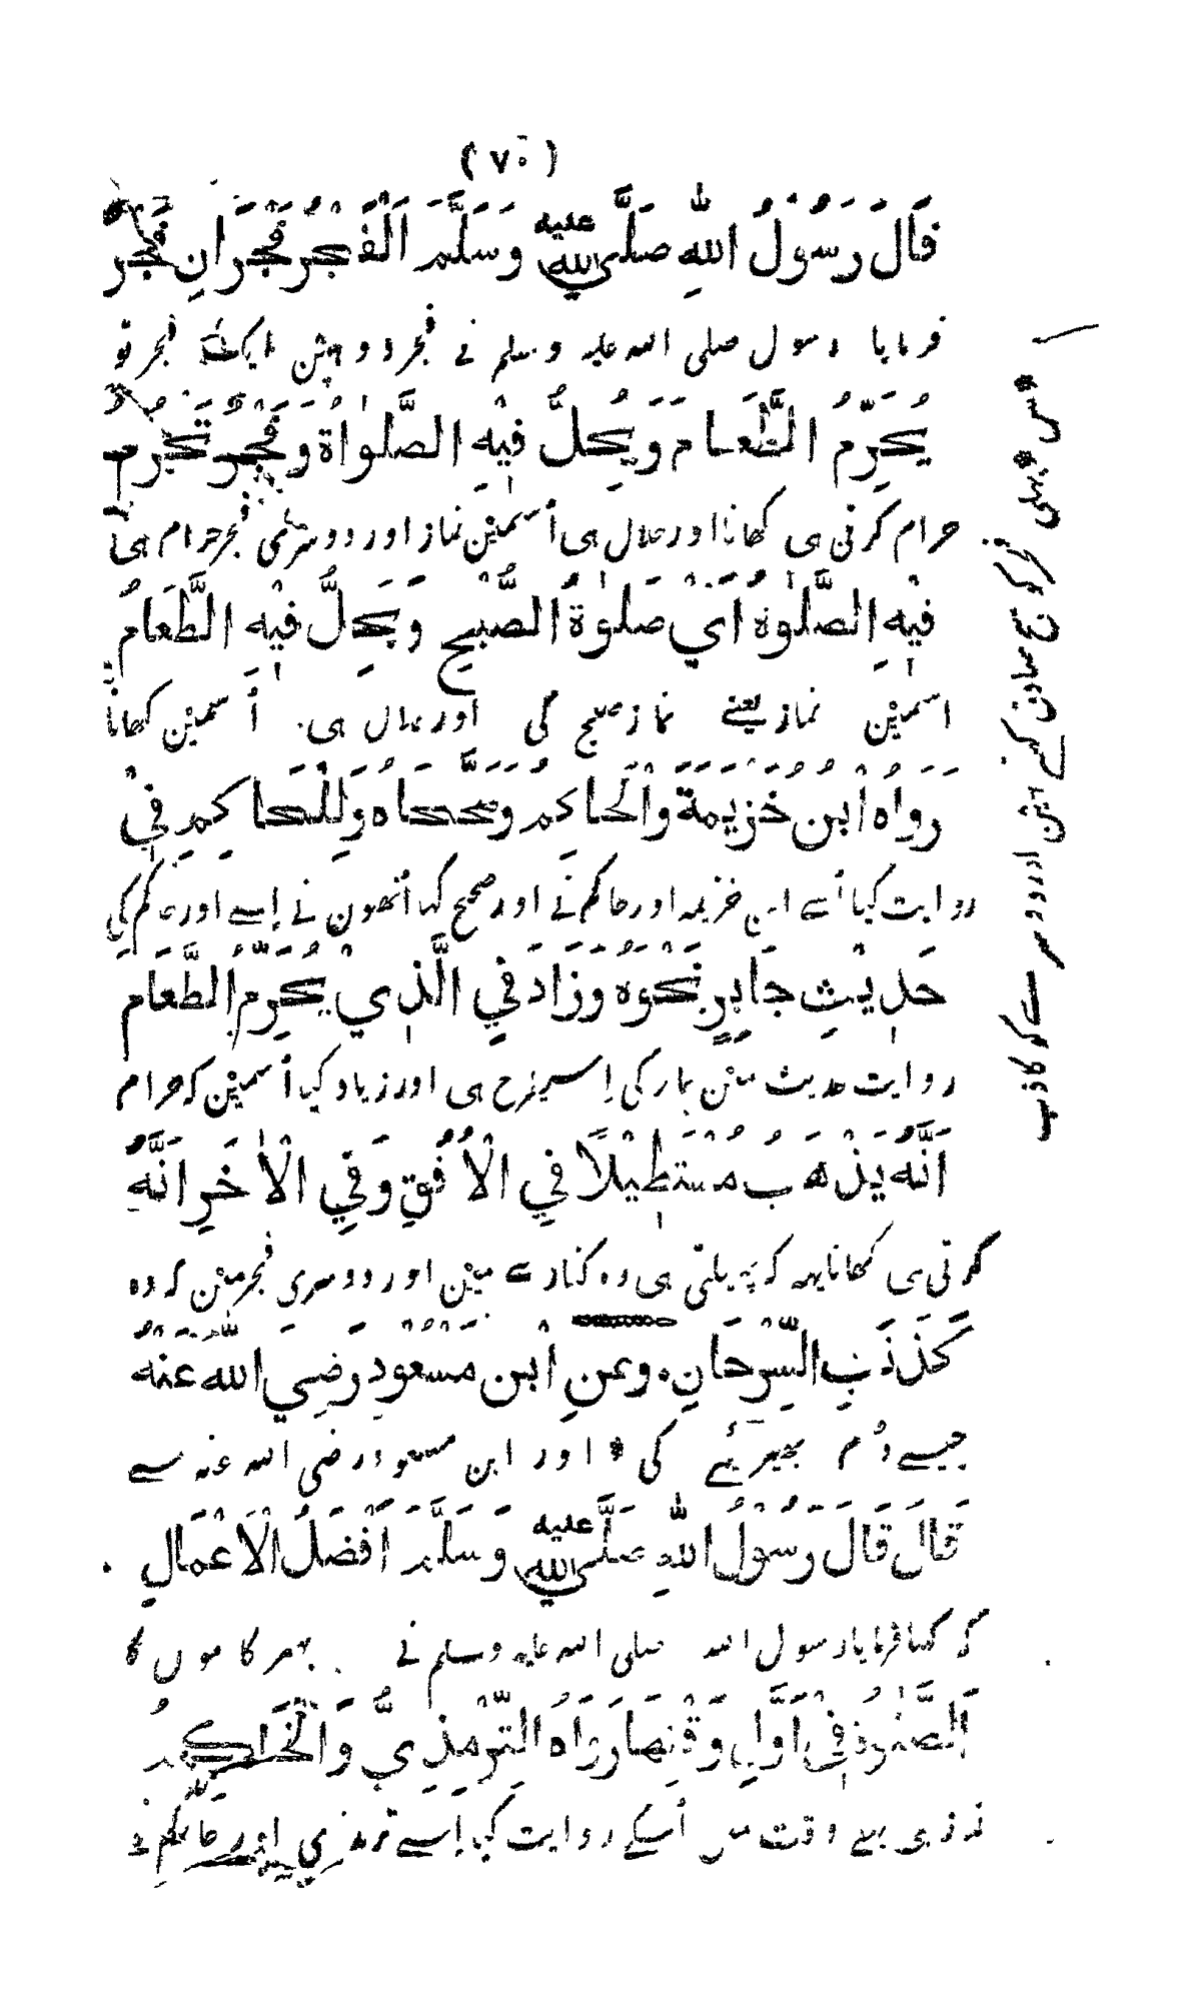 (۷۰)
قَالَ رَسُوْلُ اللّٰهِ صَلَّى اللّٰه عليه وَسَلَّمَ اَلْفَجْرُ فَجْرَانِ فَجْرٌ
فرمایا رسول صلی اللہ علیہ وسلم نے فجر دو ہین ایک فجر تو
يُحَرِّمُ الطَّعَامَ وَيُحِلُّ فِيْهِ الصَّلٰوةُ وَفَجْرٌ تُحَرِّمُ
حرام کرتی ہی کھانا اور حلال ہی اُسمین نماز اور دوسری فجر حرام ہی
فِيْهِ الصَّلٰوةُ اَيْ صَلٰوةُ الصُّبْحِ وَيَحِلُّ فِيْهِ الطَّعَامُ
اسمین نماز یعنے نماز صبح کی اور حلال ہی اُسمین کھانا
رَوَاهُ ابْنُ خُزَيْمَةَ وَالْحَاكِمُ وَصَحَّحَاهُ وَلِلْحَاكِمِ فِيْ
روایت کیا اُسے ابن خزیمہ اور حاکم نے اور صحیح کہا اُنھون نے اِسے اور حاکم کی
حَدِيْثِ جَابِرٍ نَحْوَهُ وَزَادَ فِي الَّذِيْ يُحَرِّمُ الطَّعَامَ
روایت حدیث مین جابر کی اِسیطرح ہی اور زیاد کیا اُسمین کہ حرام
اَنَّهُ يَذْهَبُ مُسْتَطِيْلًا فِي الْاُفُقِ وَفِي الْاٰخَرِ اَنَّهُ
کرتی ہی کھانا یہہ کہ پہیلتی ہی وہ کنارے مین اور دوسری فجر مین کہ وہ
كَذَنَبِ السِّرْحَانِ۔ وعَنِ ابْنِ مَسْعُوْدٍ رَضِيَ اللّٰهُ عَنْهُ
جیسے دُم بھیڑیئے کی * اور ابن مسعود رضی اللہ عنہ سے
قَالَ قَالَ رَسُوْلُ اللّٰهِ صَلَّى اللّٰه عليه وَسَلَّمَ اَفْضَلُ الْاَعْمَالِ
کہ کہا فرمایا رسول اللہ صلی اللہ علیہ وسلم نے بہتر کامون کا
اَلصَّلٰوةُ فِيْ اَوَّلِ وَقْتِهَا رَوَاهُ التِّرْمِذِيُّ وَالْحَاكِمُ
نماز ہی پہلے وقت مین اُسکے روایت کیا اِسے ترمذی اور حاکم نے
* اس پہلی فجر کو صبح صادق کہتے ہین اور دوسرے کو کاذب